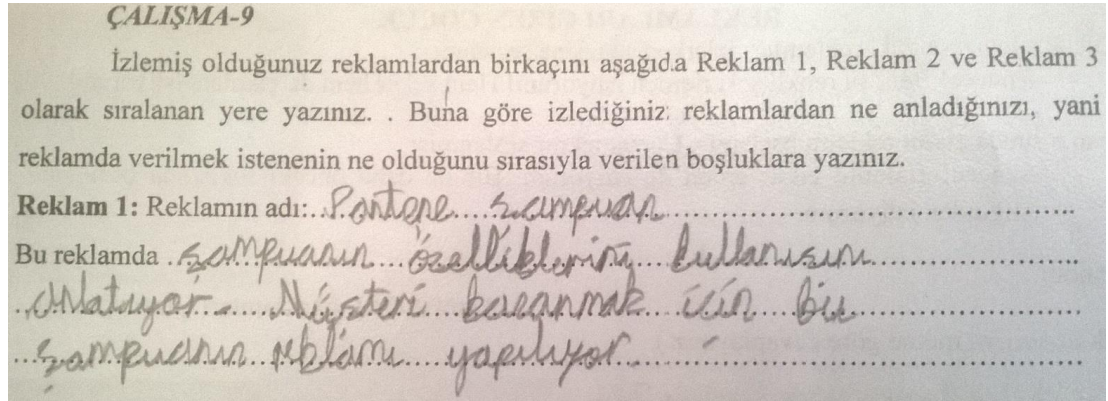 ÇALIŞMA-9
İzlemiş olduğunuz reklamlardan birkaçını aşağıda Reklam 1, Reklam 2 ve Reklam 3
olarak sıralanan yere yazınız. . Buna göre izlediğiniz reklamlardan ne anladığınızı, yani
reklamda verilmek istenenin ne olduğunu sırasıyla verilen boşluklara yazınız.
Reklam 1: Reklamın adı:..Pantene....şampuan..........
Bu reklamda .şampuanın...özelliklerini...kullanışını..........
.anlatıyor.......Müşteri....kazanmak....için...bir..........
...şampuanın..reklamı....yapılıyor..........